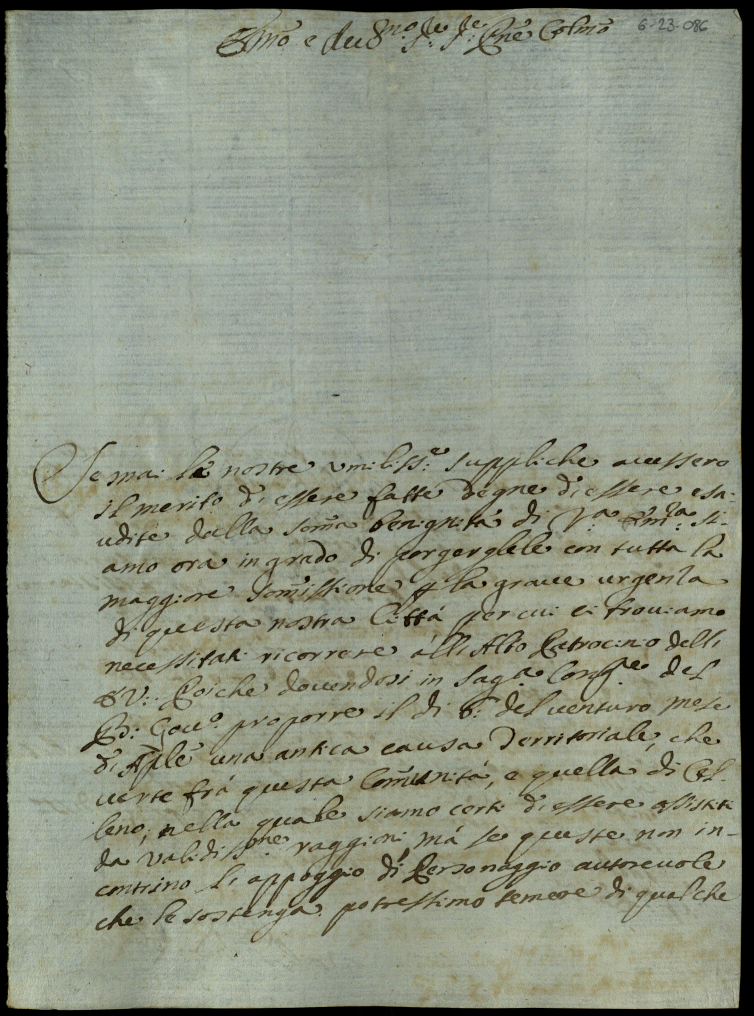 Emõ e Reu.mo Sig.re Sig.re Pñe Colmõ
6-23-086
Se mai le nostre umiliss:e suppliche auessero
il merito di essere fatte degne di essere esa:
udite dalla som̃a benignitá di V.a Em.za si:
amo ora in grado di porgerglele con tutta la
maggiore som̃issione p la graue urgenza
di questa nostra Cittá per cui ci trouiamo
necessitati ricorrere all'Alto Patrocinio dell'
E V:: Poiche douendosi in Sag.a Cong.e del
B: Gou.o proporre il di 6: del uenturo mese
di Aple una antica causa Territoriale, che
uerte frá questa Com̃unitá, e quella di Cel:
leno, nella quale siamo certi di essere assistiti
da validiss.me raggioni má se queste non in-
contrino li appoggio di Personaggio autoreuole
che le sostenga potressimo temere di qualche